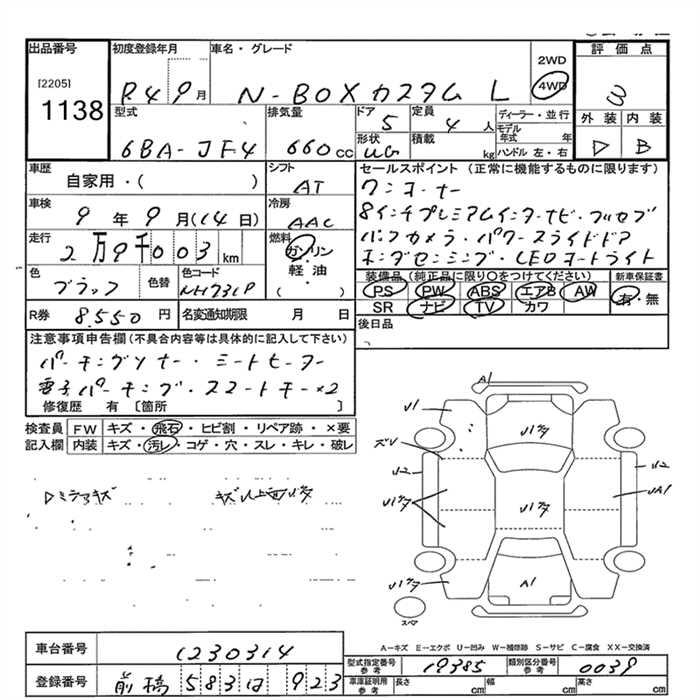 出品番号 初度登録年月 車名・グレード 評価点
[2205] 2WD
1138 R4 9月 N-BOXカスタム L 4WD 3
型式 排気量 ドア 定員 ディーラー・並行 外装 内装
5 4人 モデル年式 年
6BA-JF4 660cc 形状 積載 D B
UG kg ハンドル 左・右
車歴 シフト セールスポイント (正常に機能するものに限ります)
自家用・( ) AT ワンオーナー
車検 冷房 8インチプレミアムインターナビ・フルセグ
9年9月(14日) AAC
走行 燃料 バックカメラ・パワースライドドア
2万9千003km ガソリン ホンダセンシング・LEDヘッドライト
色 色替 色コード 軽油 装備品(純正品に限り○をつけてください) 新車保証書
ブラック NH731P ( ) PS PW ABS エアB AW 有・無
R券 8,550円 名変通知期限 月 日 SR ナビ TV カワ
後日品
注意事項申告欄(不具合内容等は具体的に記入して下さい)
パーキングソナー・シートヒーター
電子パーキング・スマートキー×2
修復歴 有 [箇所 ]
検査員 FW キズ・飛石・ヒビ割・リペア跡・×要
記入欄 内装 キズ・汚レ・コゲ・穴・スレ・キレ・破レ
A1
U1 U1ヶタ
ズレ
U2 U2
U1ヶタ U1ヶタ UA1
U1ヶタ A1
スペア
A-キズ E-エクボ U-凹み W-補修跡 S-サビ C-腐食 XX-交換済
車台番号 1230314 型式指定番号 参考 19385 類別区分番号 参考 0039
登録番号 前橋 583 は 923 車庫証明用 参考 長さ cm 幅 cm 高さ cm